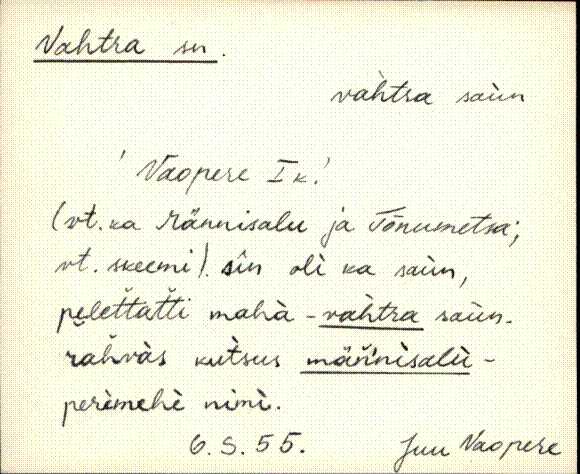 Vahtra sn.
vàhtra saùn
! Vaopere I k!
(vt. ka Männisalu ja Tõnumetsa;
vt. skeemi). sîn olì ka saùn,
pelet̆tat̆ti mahà - vàhtra saùn.
rahvàs kut̀sus män̆nìsalù -
perìmehè nimì.
6. S. 55. Juu Vaopere